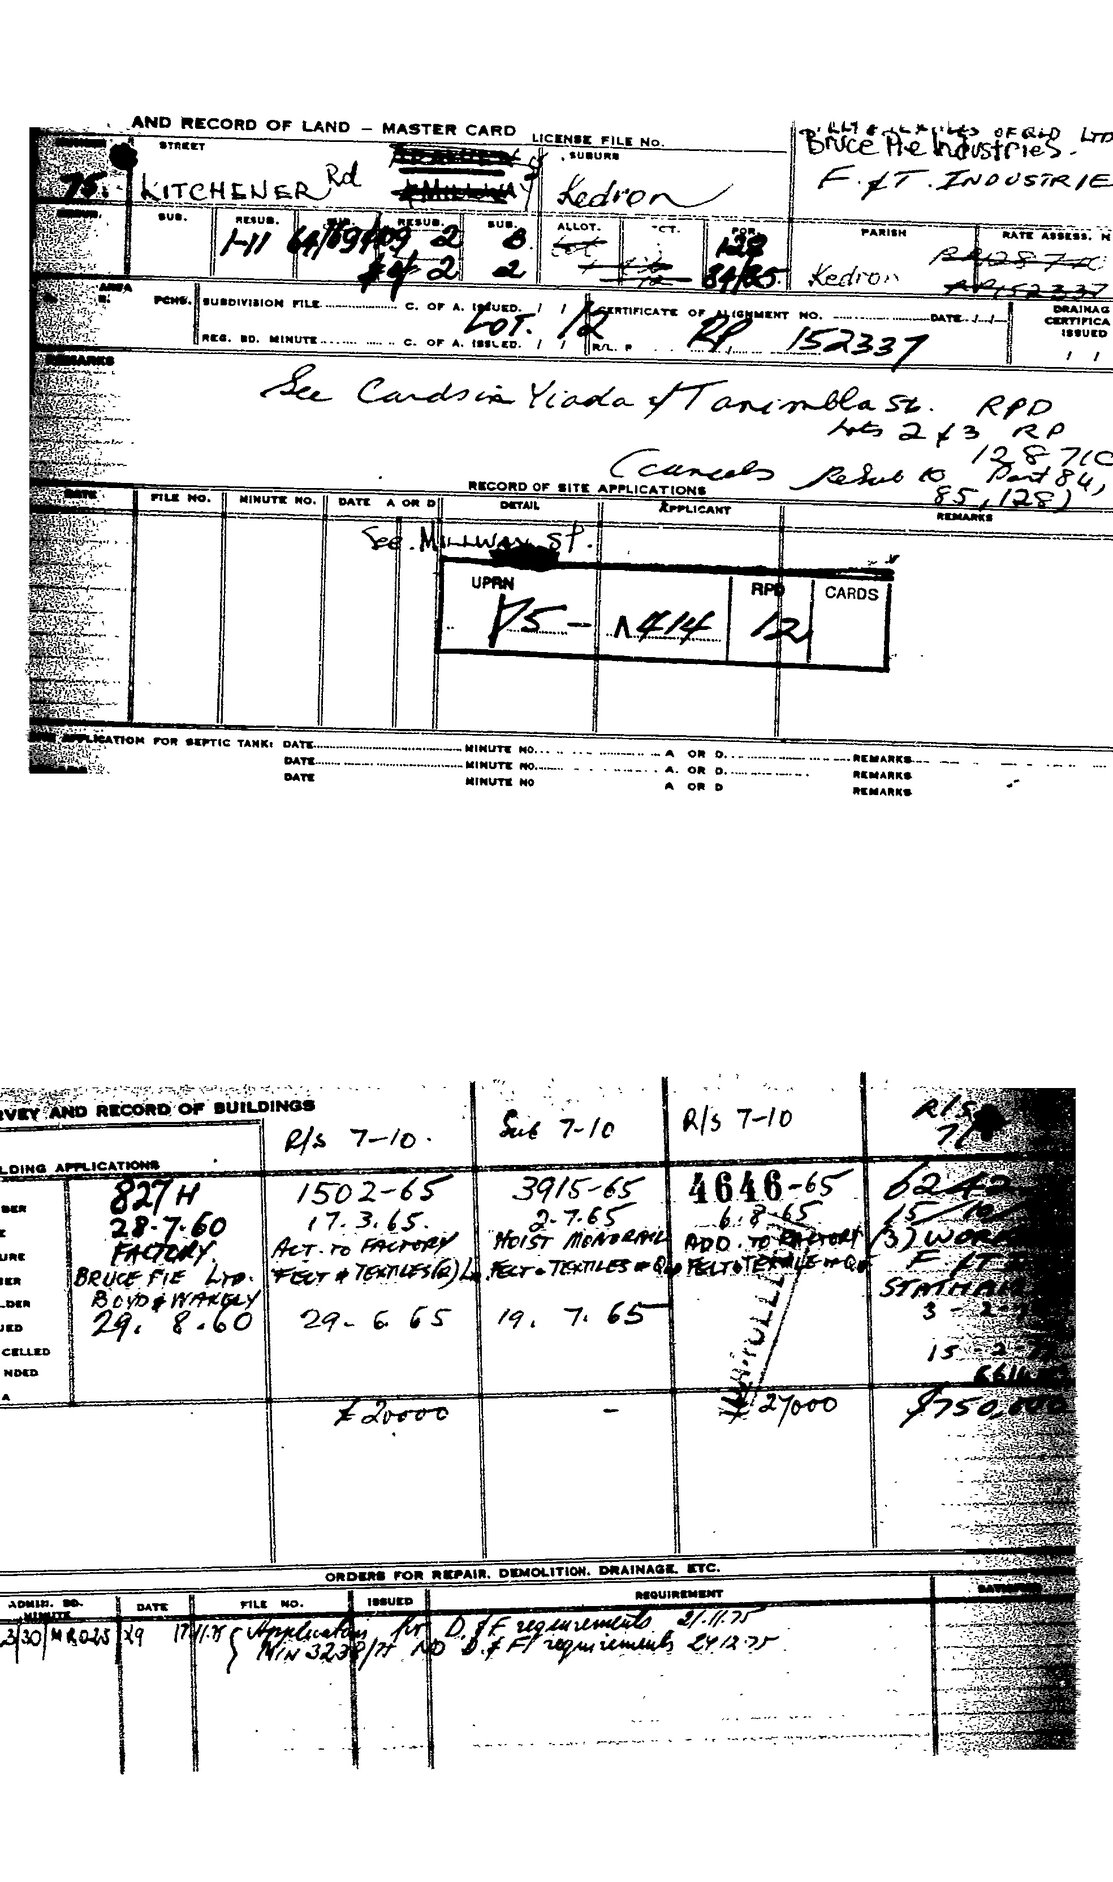 AND RECORD OF LAND – MASTER CARD
LICENSE FILE No.
FELT & TEXTILES OF QLD LTD
Bruce Pie Industries.
F. & T. INDUSTRIE
STREET
SUBURB
75. KITCHENER Rd
Kedron
SUB. RESUB. SUB. RESUB. SUB. ALLOT. CT. POR. PARISH RATE ASSESS. N
1-11 64/69 2 B 128
4 2 2 84/85 Kedron
RP152337
AREA
PCHS. SUBDIVISION FILE C. OF A. ISSUED. / / CERTIFICATE OF ALIGNMENT NO. DATE / /
DRAINAG
CERTIFICA
ISSUED
LOT. 12 RP 152337
REG. BD. MINUTE C. OF A. ISSUED. / / R/L. P / /
REMARKS
See Cards in Yiada & Tanimbla St. RPD
Lots 2 & 3 RP
128710
(cancels Resub 10 Part 84,
85, 128)
RECORD OF SITE APPLICATIONS
DATE FILE NO. MINUTE NO. DATE A OR D DETAIL APPLICANT REMARKS
See MILLWAY St.
UPRN RPD CARDS
75 – 414 12
APPLICATION FOR SEPTIC TANK: DATE MINUTE NO. A OR D. REMARKS
DATE MINUTE NO. A. OR D. REMARKS
DATE MINUTE NO A OR D REMARKS
RVEY AND RECORD OF BUILDINGS
R/S 7-10. Sub 7-10 R/S 7-10 R/S
LDING APPLICATIONS
BER 827H 1502-65 3915-65 4646-65 6242
E 28.7.60 17.3.65. 2.7.65 6.8.65 15/10/
URE FACTORY. ALT. TO FACTORY HOIST MONORAIL ADD. TO FACTORY (3) WORK
IER BRUCE PIE LTD. FELT & TEXTILES (Q) Ld FELT & TEXTILES of Q FELT & TEXTILE of Q F & T
LDER BOYD & WAKELY STATHAM
UED 29. 8.60 29. 6. 65 19. 7. 65 3 - 2 -
CELLED 15 - 2 - 72
NDED
A
£20000 – £27000 $750,000
ORDERS FOR REPAIR, DEMOLITION, DRAINAGE, ETC.
ADMIN. BD. MINUTE DATE FILE NO. ISSUED REQUIREMENT SATISFIED
Application for D. & F requirements 21.11.75
Min 3238/75 NO D. & F requirements 24.12.75